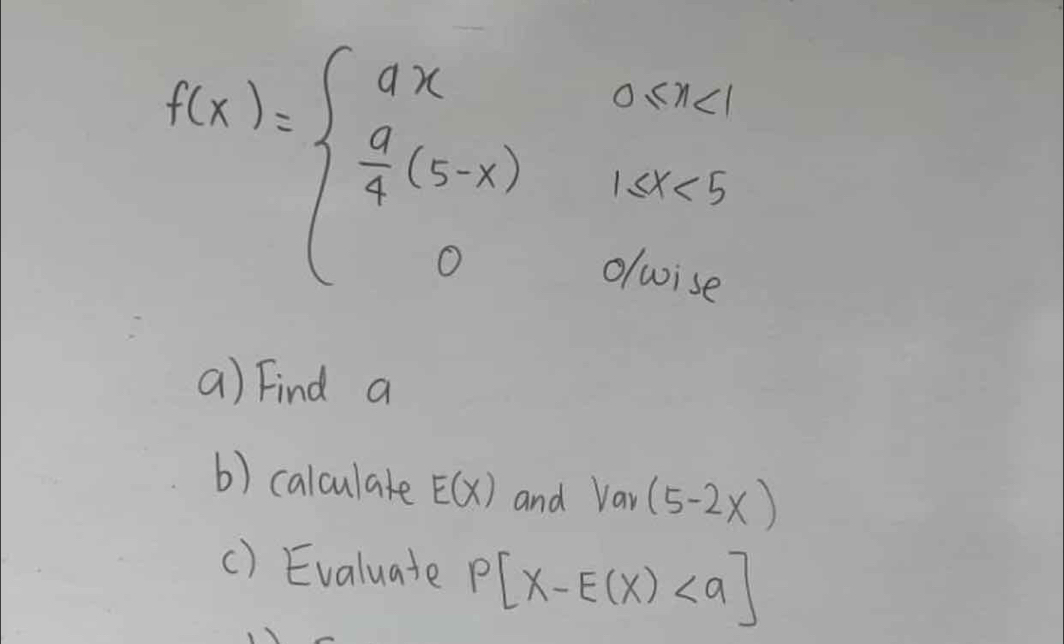 f(x) = { ax 0 ≤ x < 1
a/4 (5-x) 1 ≤ x < 5
0 o/wise
a) Find a
b) calculate E(X) and Var (5-2X)
c) Evaluate P[X-E(X) < a]